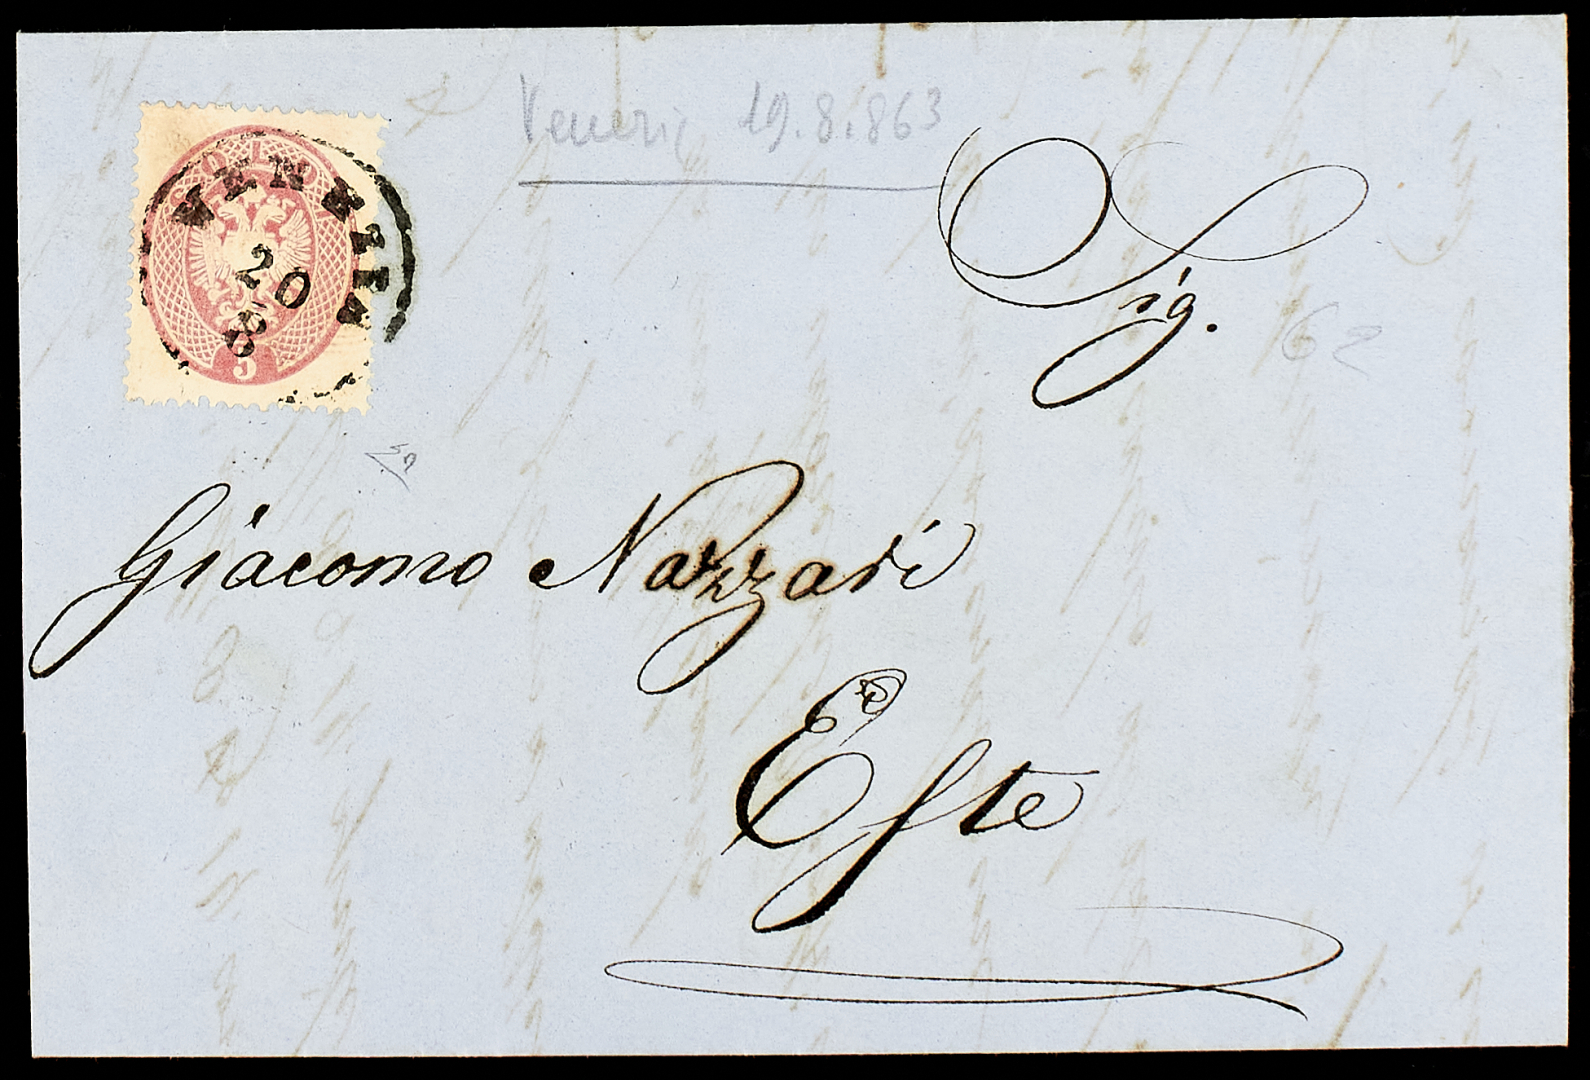 Venezia 19.8.863
SOLDI
VENEZIA
20
8
5
Sig.
62
Giacomo Nazzari
Este